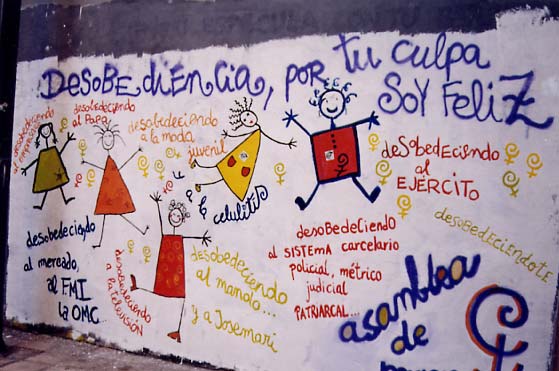 DESOBEdiENCia, pOR tu culpa
SOY FEliZ
desobedeciendo
desobedeciendo
al PAPA
desobedeciendo
a la moda
juvenil
y la celulitis
desobedeciendo
al
EJÉRCITO
desobedeciéndote
desobedeciendo
al mercado,
al FMI
la OMC
desobedeciendo
a la televisión
desobedeciendo
al manolo...
y a Josemari
desobedeciendo
al SISTEMA carcelario
policial, métrico
judicial
PATRIARCAL...
asamblea
de